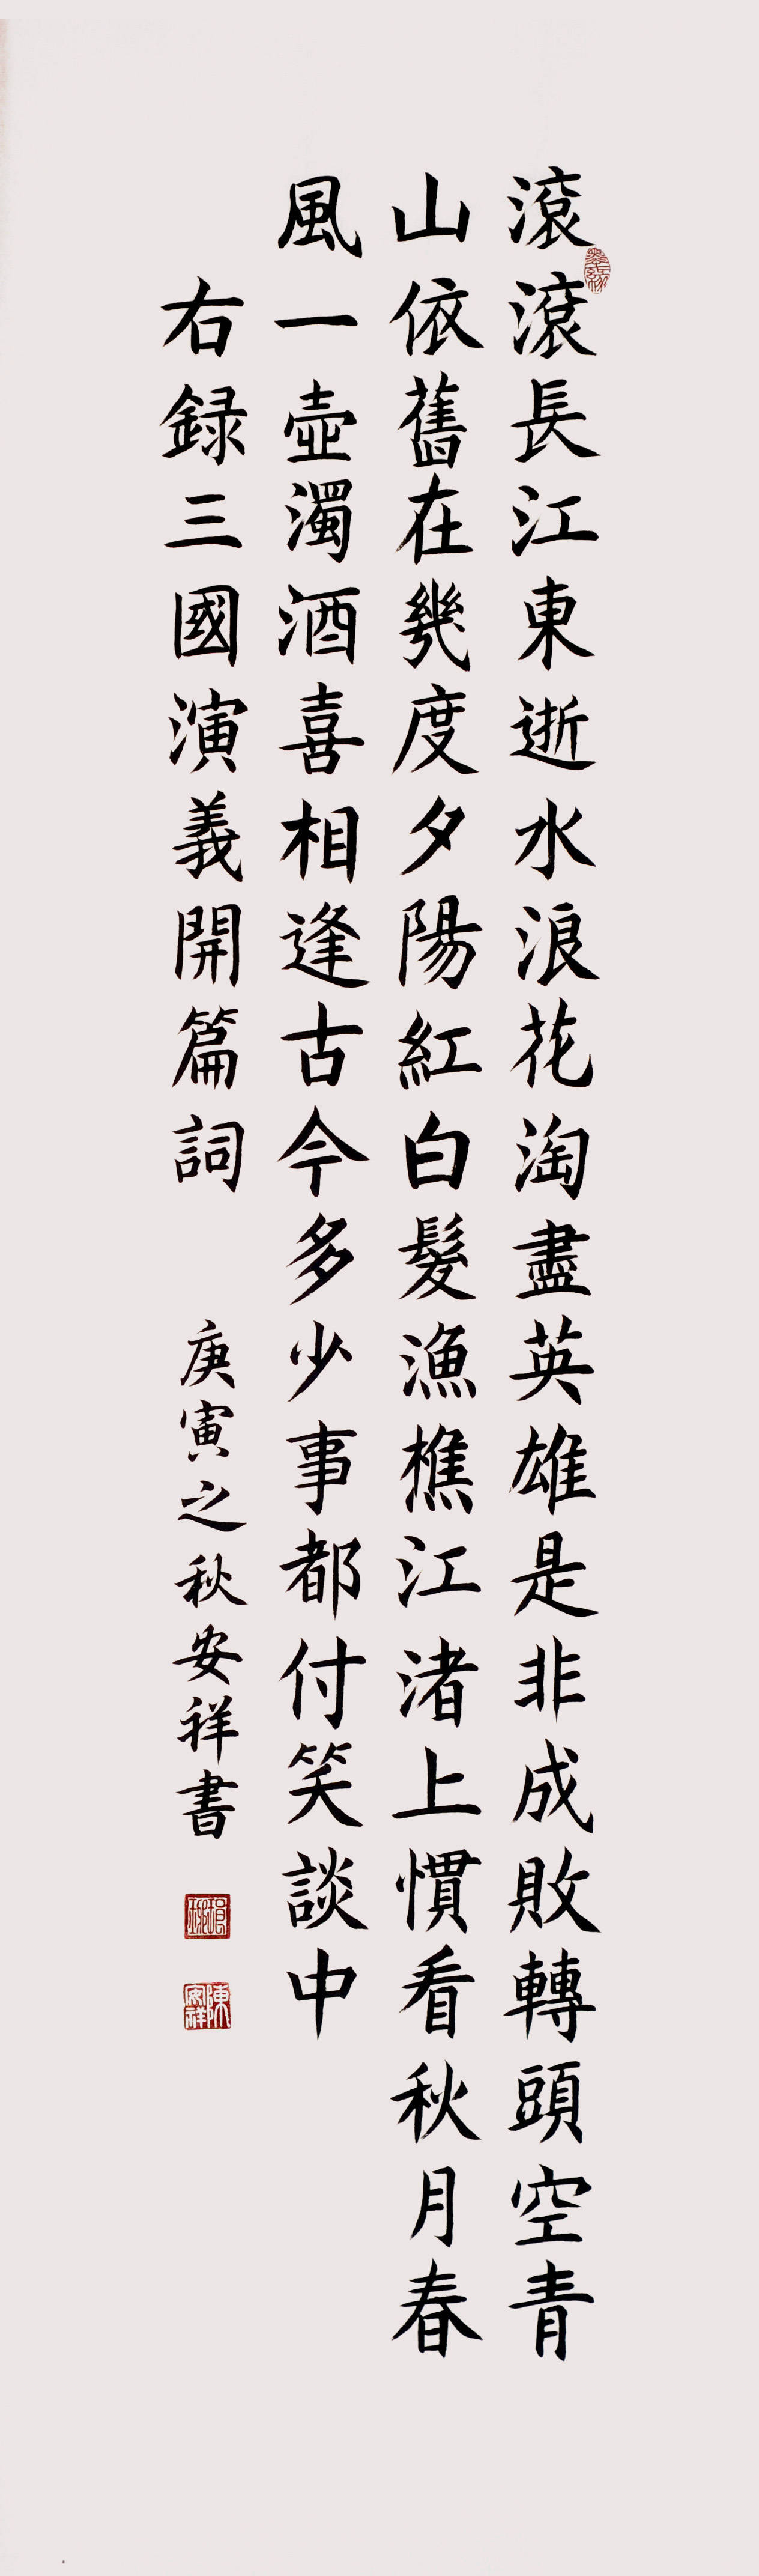 滾滾長江東逝水浪花淘盡英雄是非成敗轉頭空青
山依舊在幾度夕陽紅白髮漁樵江渚上慣看秋月春
風一壺濁酒喜相逢古今多少事都付笑談中
右録三國演義開篇詞
庚寅之秋安祥書
陳安祥